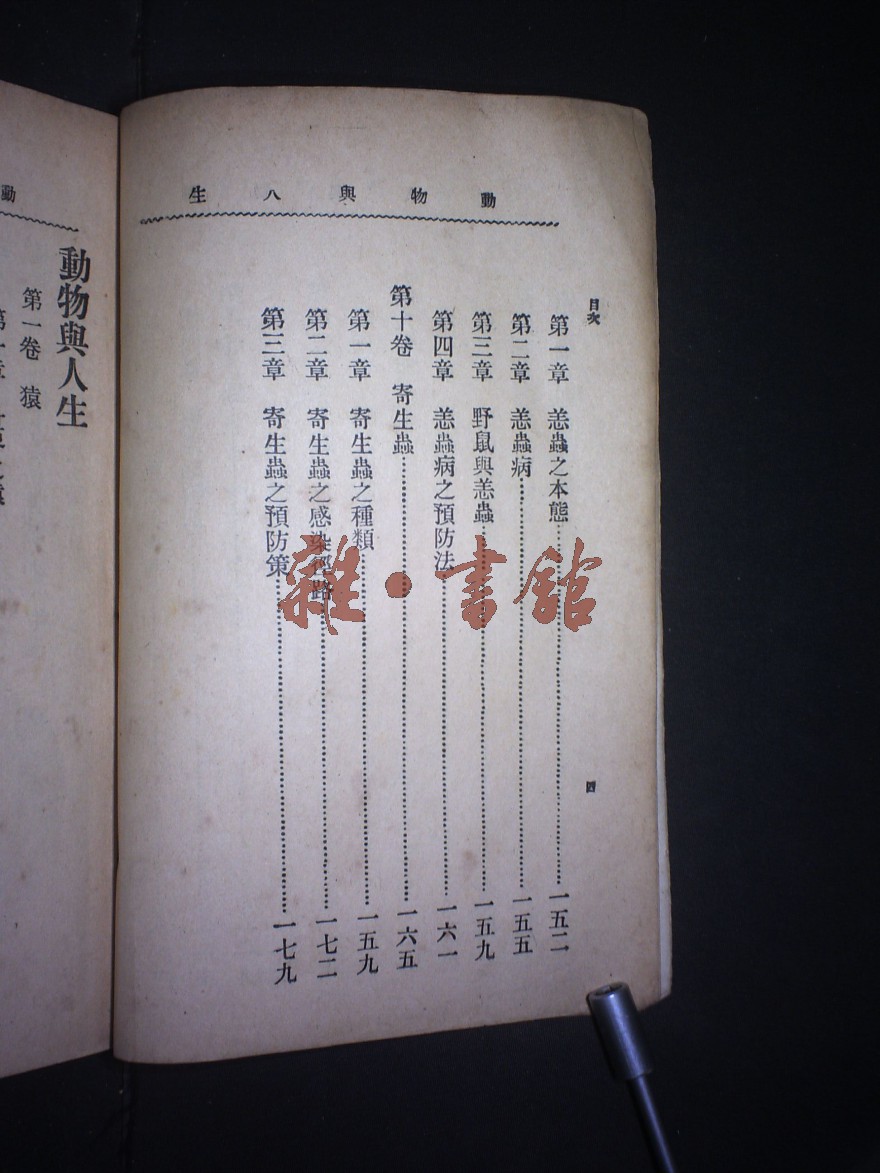 動物與人生
目次
第一章 恙蟲之本態 一五二
第二章 恙蟲病 一五五
第三章 野鼠與恙蟲 一五九
第四章 恙蟲病之預防法 一六一
第十卷 寄生蟲 一六五
第一章 寄生蟲之種類 一五九
第二章 寄生蟲之感染徑路 一七二
第三章 寄生蟲之預防策 一七九
四
雜·書館
動
動物與人生
第一卷 猿
第一章